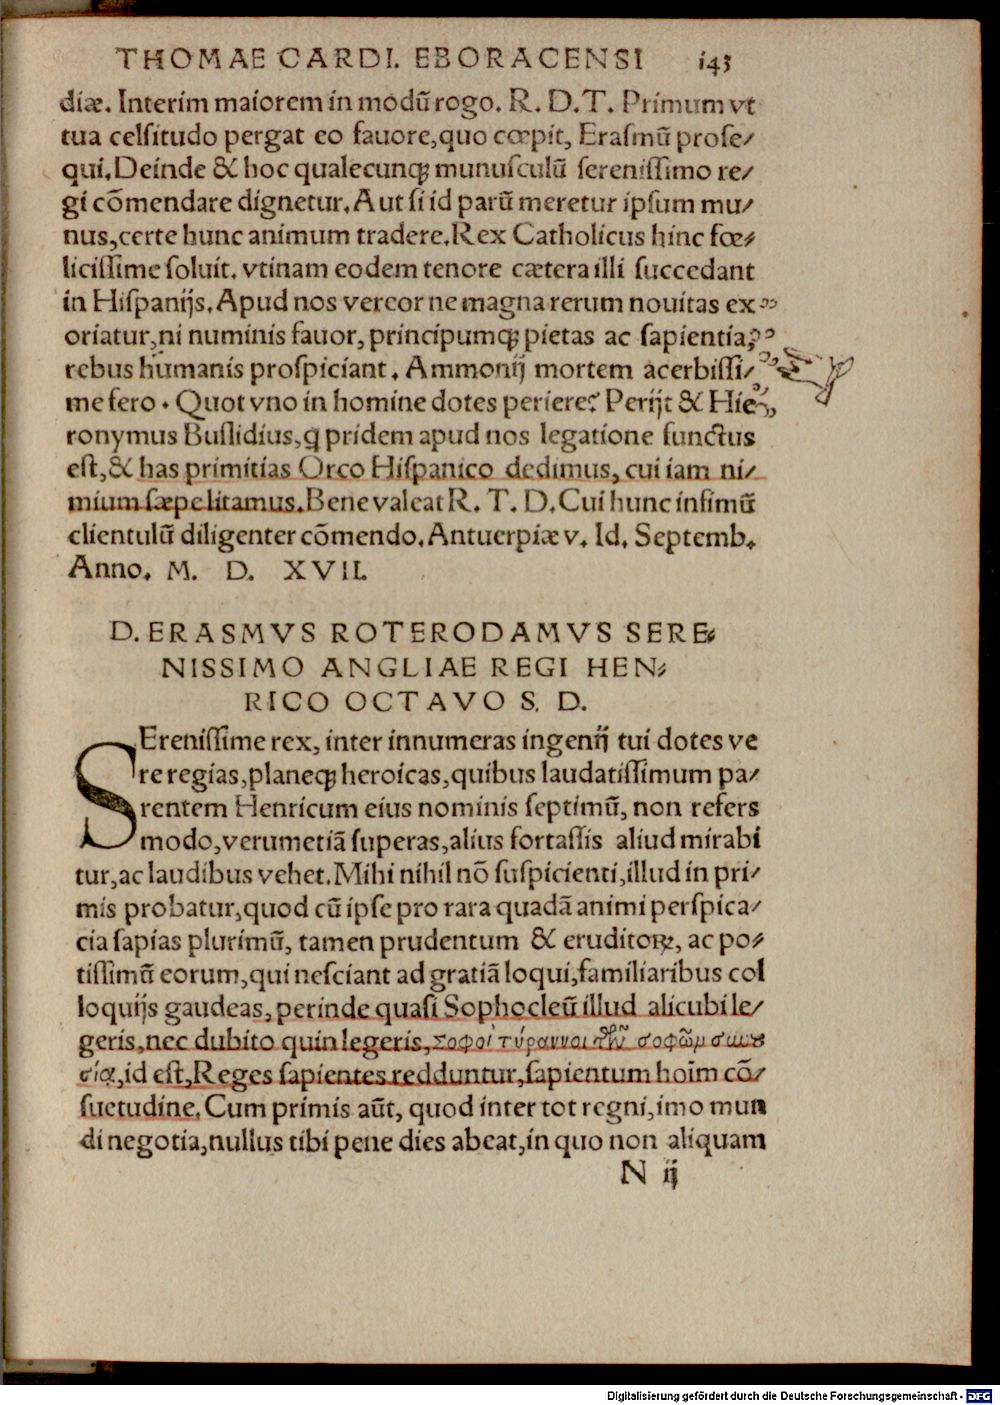 THOMAE CARDI. EBORACENSI 143
diæ. Interim maiorem in modū rogo. R. D. T. Primum vt
tua celsitudo pergat eo fauore, quo cœpit, Erasmū prose⸗
qui. Deinde & hoc qualecunq; munusculū serenissimo re⸗
gi cōmendare dignetur. Aut si id parū meretur ipsum mu⸗
nus, certe hunc animum tradere. Rex Catholicus hinc fœ⸗
licissime soluit. vtinam eodem tenore cætera illi succedant
in Hispanijs. Apud nos vereor ne magna rerum nouitas ex
oriatur, ni numinis fauor, principumq; pietas ac sapientia,
rebus humanis prospiciant. Ammonij mortem acerbissi⸗
me fero. Quot vno in homine dotes periere? Perijt & Hie⸗
ronymus Buslidius, q pridem apud nos legatione functus
est, & has primitias Orco Hispanico dedimus, cui iam ni⸗
mium sæpe litamus. Bene valeat R. T. D. Cui hunc infimū
clientulū diligenter cōmendo. Antuerpiæ v. Id. Septemb.
Anno. M. D. XVII.
D. ERASMVS ROTERODAMVS SERE⸗
NISSIMO ANGLIAE REGI HEN⸗
RICO OCTAVO S. D.
SErenissime rex, inter innumeras ingenij tui dotes ve
re regias, planeq; heroicas, quibus laudatissimum pa⸗
rentem Henricum eius nominis septimū, non refers
modo, verumetiā superas, alius fortassis aliud mirabi
tur, ac laudibus vehet. Mihi nihil nō suspicienti, illud in pri⸗
mis probatur, quod cū ipse pro rara quadā animi perspica⸗
cia sapias plurimū, tamen prudentum & eruditoꝝ, ac po⸗
tissimū eorum, qui nesciant ad gratiā loqui, familiaribus col
loquijs gaudeas, perinde quasi Sophocleū illud alicubi le⸗
geris, nec dubito quin legeris, Σοφοὶ τύραννοι τῶν σοφῶμ σωου
σίᾳ, id est, Reges sapientes redduntur, sapientum hoīm cō⸗
suetudine. Cum primis aūt, quod inter tot regni, imo mun
di negotia, nullus tibi pene dies abeat, in quo non aliquam
N ij
Digitalisierung gefördert durch die Deutsche Forschungsgemeinschaft - DFG